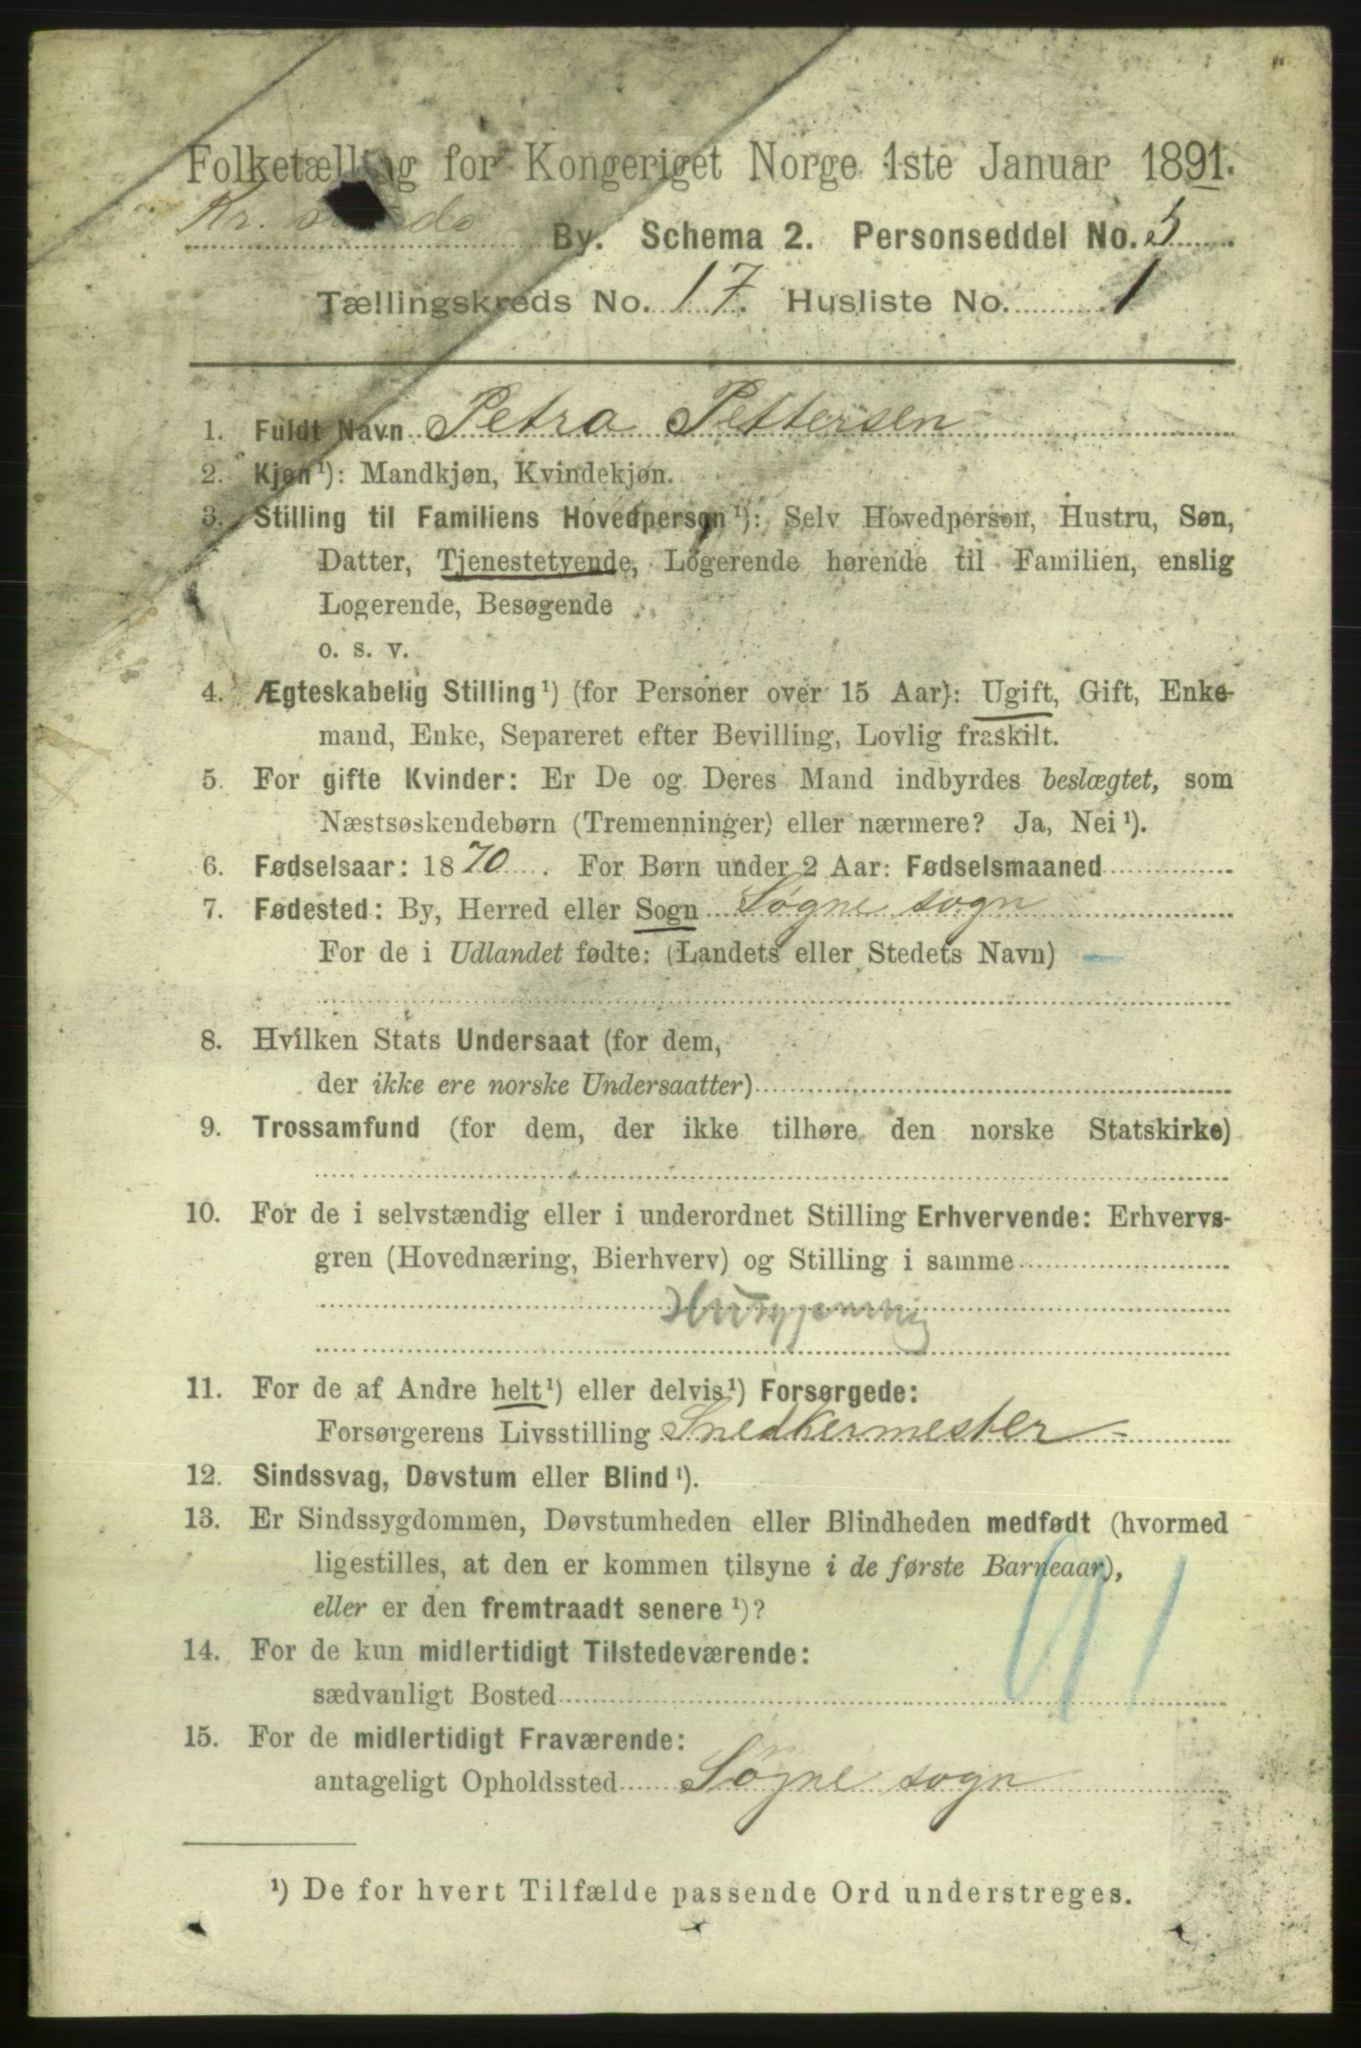 Folketælling for Kongeriget Norge 1ste Januar 1891.
By. Schema 2. Personseddel No. 5
Tællingskreds No. 17. Husliste No. 1
1. Fuldt Navn Petra Pettersen
2. Kjøn¹): Mandkjøn, Kvindekjøn.
3. Stilling til Familiens Hovedperson¹): Selv Hovedperson, Hustru, Søn,
Datter, Tjenestetyende, Logerende hørende til Familien, enslig
Logerende, Besøgende
o. s. v.
4. Ægteskabelig Stilling¹) (for Personer over 15 Aar): Ugift, Gift, Enke-
mand, Enke, Separeret efter Bevilling, Lovlig fraskilt.
5. For gifte Kvinder: Er De og Deres Mand indbyrdes beslægtet, som
Næstsøskendebørn (Tremenninger) eller nærmere? Ja, Nei¹).
6. Fødselsaar: 1870. For Børn under 2 Aar: Fødselsmaaned
7. Fødested: By, Herred eller Sogn Søgne sogn
For de i Udlandet fødte: (Landets eller Stedets Navn)
8. Hvilken Stats Undersaat (for dem,
der ikke ere norske Undersaatter)
9. Trossamfund (for dem, der ikke tilhøre den norske Statskirke)
10. For de i selvstændig eller i underordnet Stilling Erhvervende: Erhvervs-
gren (Hovednæring, Bierhverv) og Stilling i samme
11. For de af Andre helt¹) eller delvis¹) Forsørgede:
Forsørgerens Livsstilling Snedkermester
12. Sindssvag, Døvstum eller Blind¹).
13. Er Sindssygdommen, Døvstumheden eller Blindheden medfødt (hvormed
ligestilles, at den er kommen tilsyne i de første Barneaar),
eller er den fremtraadt senere¹)?
14. For de kun midlertidigt Tilstedeværende:
sædvanligt Bosted
91
15. For de midlertidigt Fraværende:
antageligt Opholdssted Søgne sogn
¹) De for hvert Tilfælde passende Ord understreges.